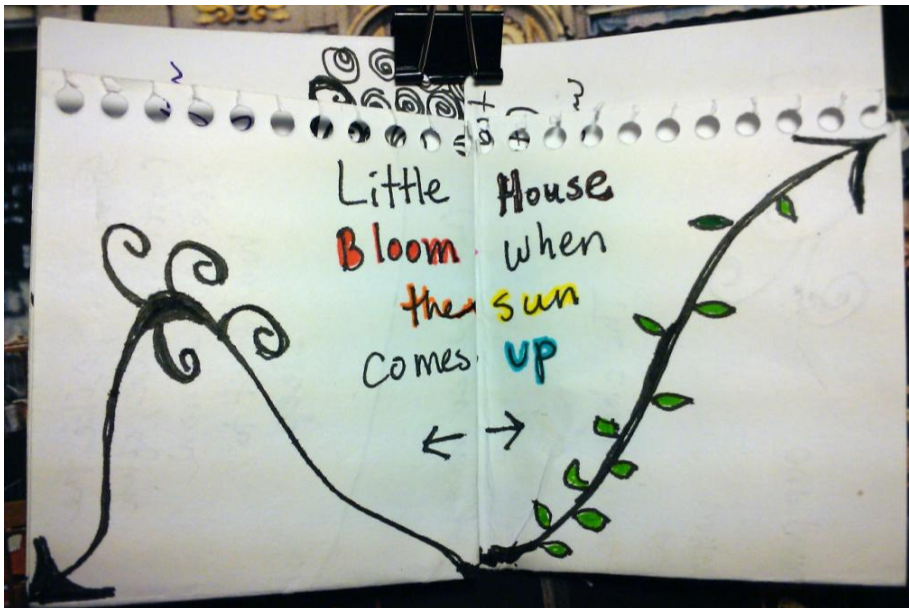 Little House
Bloom when
the sun
comes up